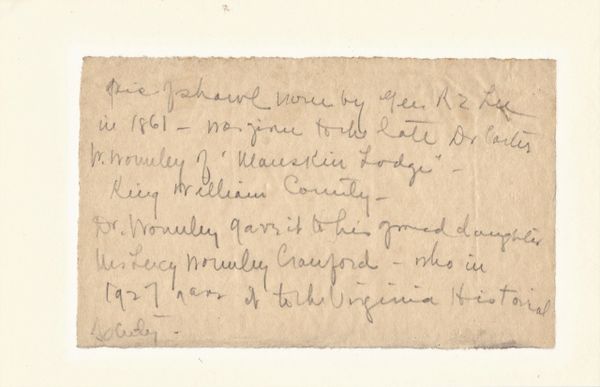 pic of shawl worn by Gen R E Lee
in 1861 – was given to the late Dr Carter
W. Wormley of "Manskin Lodge" –
King William County –
Dr. Wormley gave it to his grand daughter
Mrs Lucy Wormley Crawford – who in
1927 gave it to the Virginia Historical
Society –